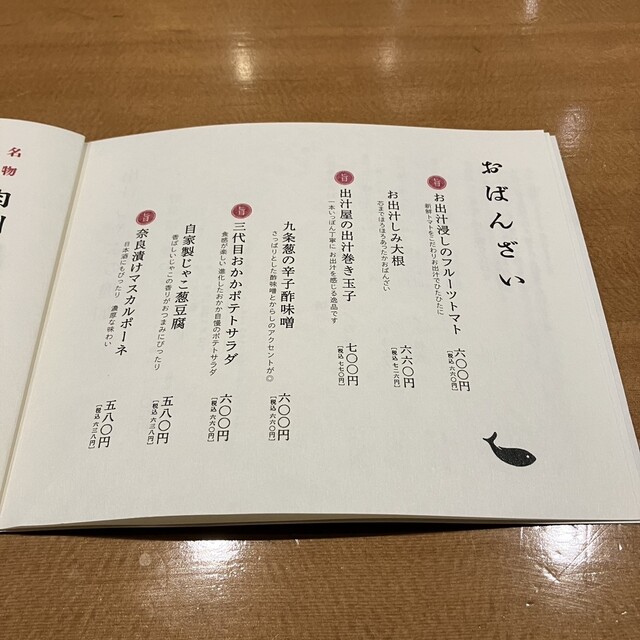 おばんざい
旨
お出汁浸しのフルーツトマト
新鮮トマトをこだわりお出汁でひたひたに
六〇〇円
［税込 六六〇円］
お出汁しみ大根
芯までほうほうあったかおばんざい
六六〇円
［税込 七二六円］
旨
出汁屋の出汁巻き玉子
一本いっぽん丁寧に お出汁を感じる逸品です
七〇〇円
［税込 七七〇円］
九条葱の辛子酢味噌
さっぱりとした酢味噌とからしのアクセントが◎
六〇〇円
［税込 六六〇円］
旨
三代目おかかポテトサラダ
食感が楽しい 進化したおかか自慢のポテトサラダ
六〇〇円
［税込 六六〇円］
自家製じゃこ葱豆腐
香ばしいじゃこの香りがおつまみにぴったり
五八〇円
［税込 六三八円］
旨
奈良漬けマスカルポーネ
日本酒にもぴったり 濃厚な味わい
五八〇円
［税込 六三八円］
名物